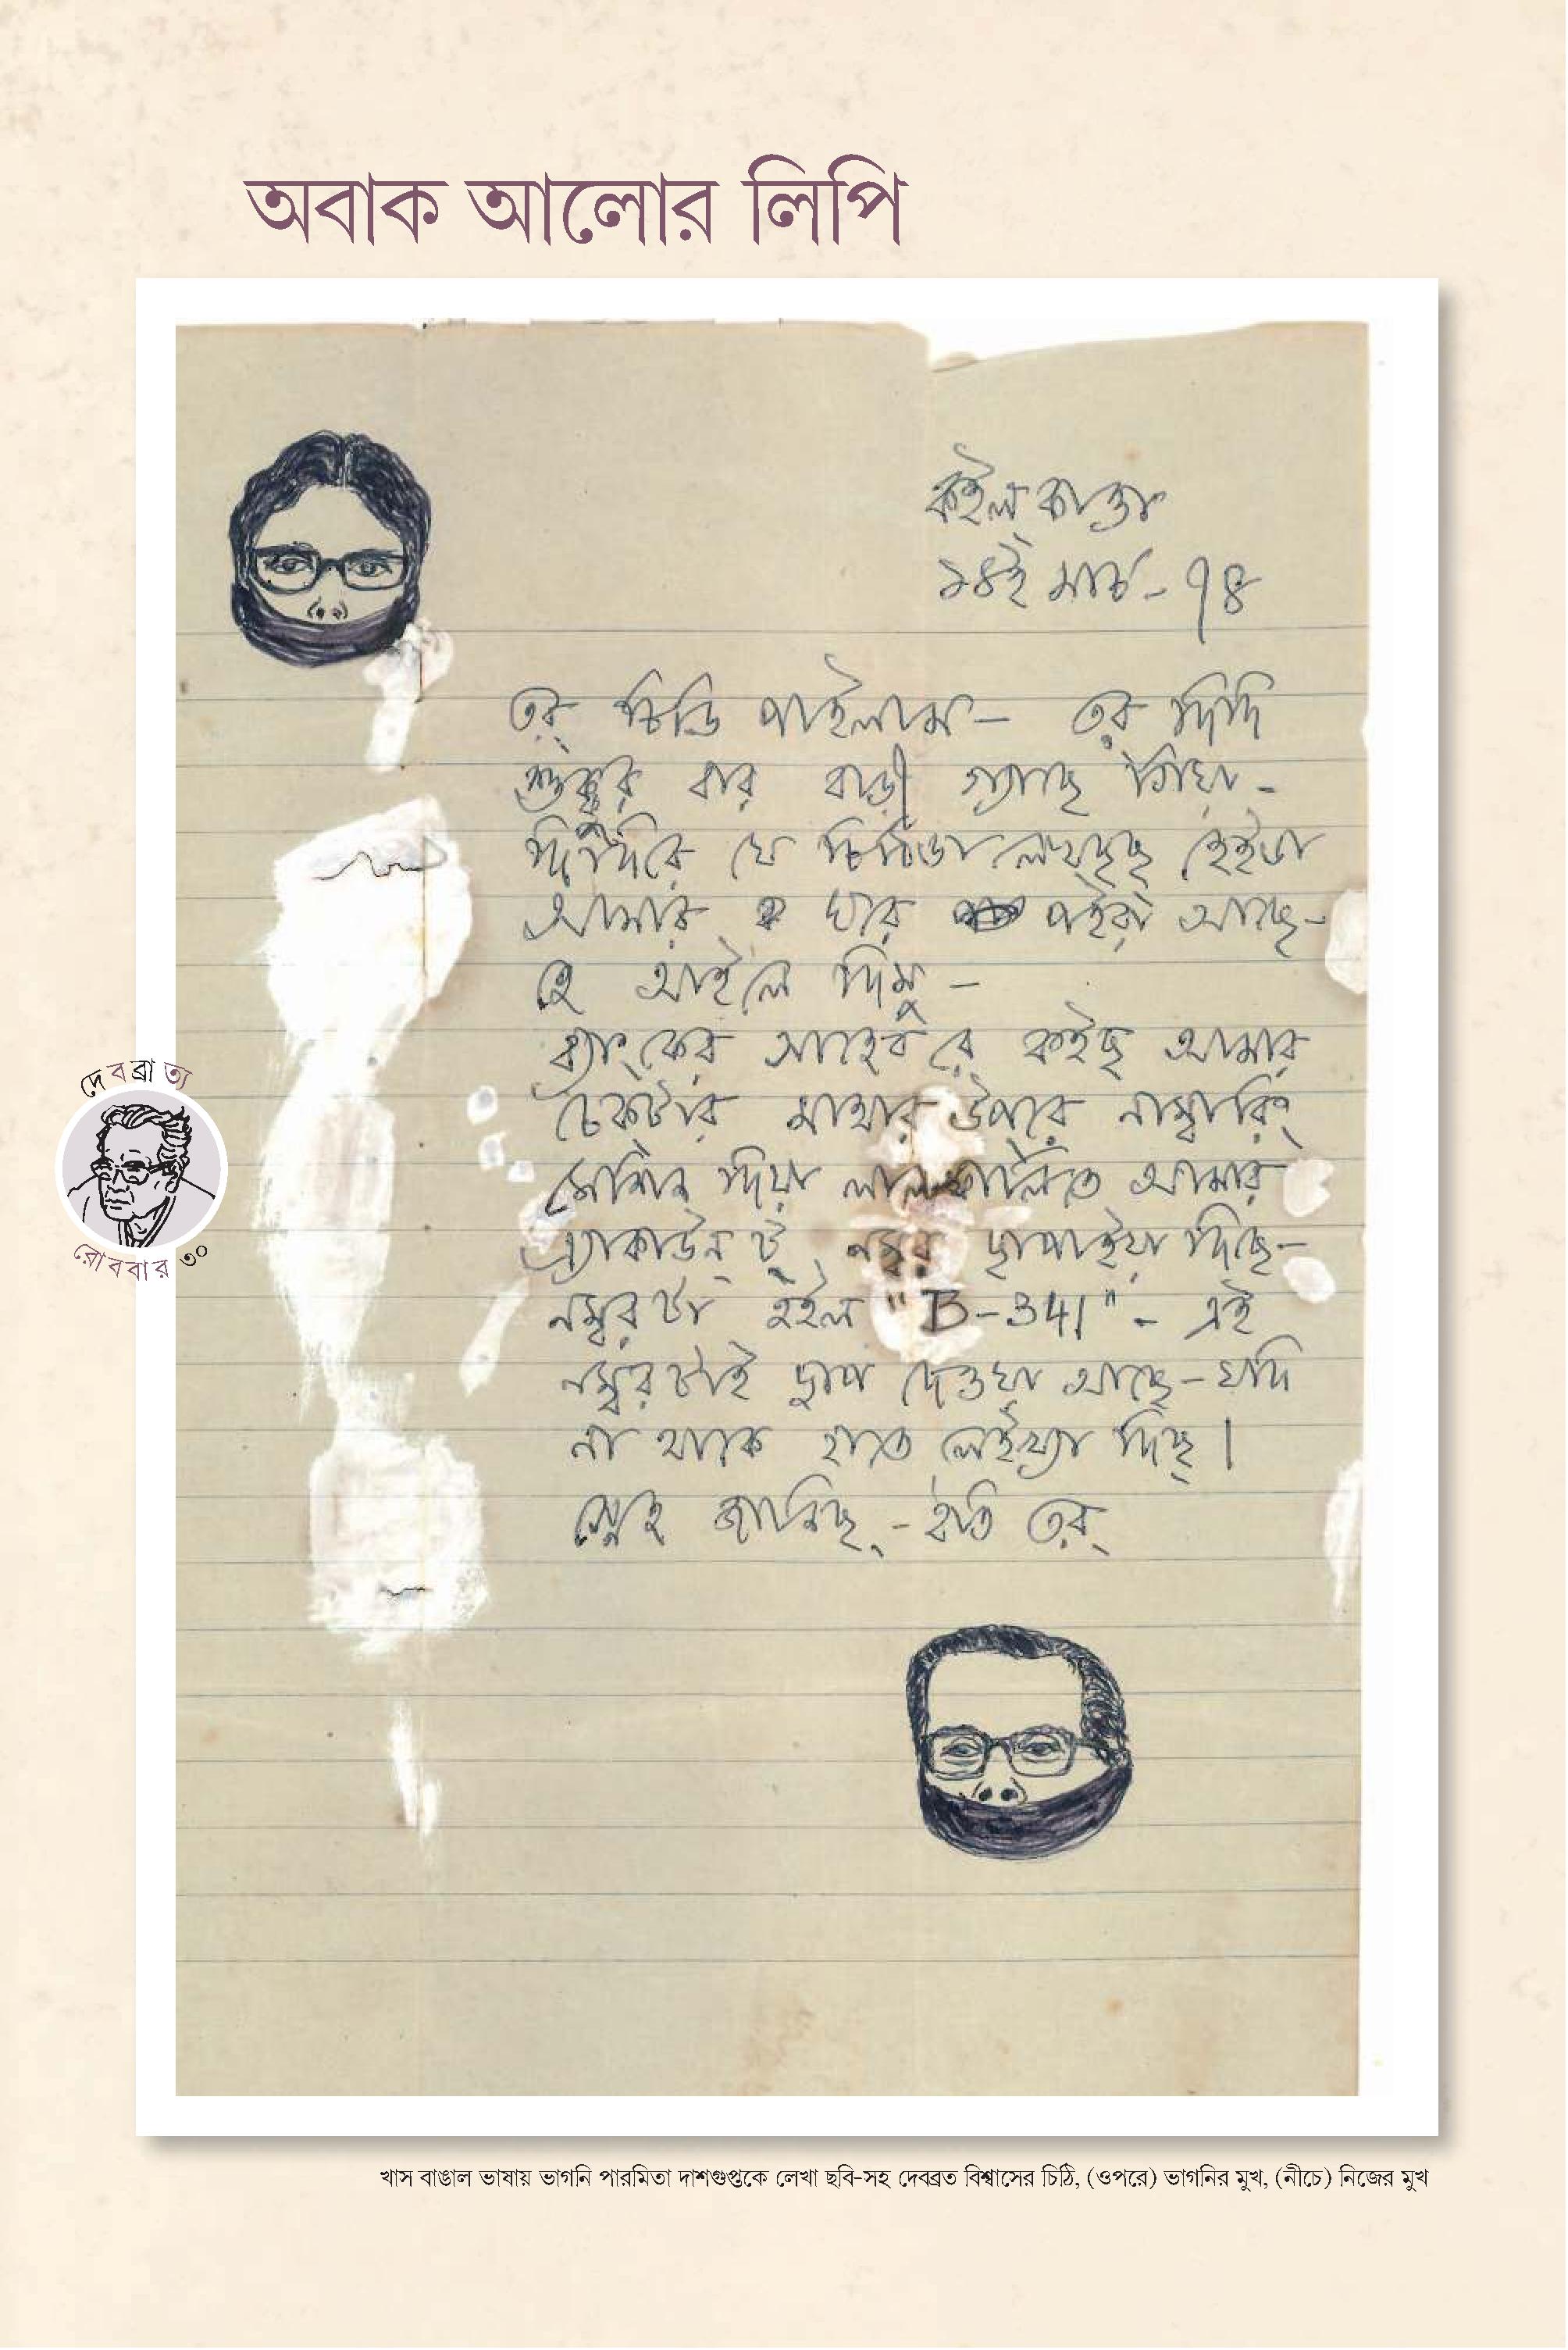 অবাক আলোর লিপি
কইলকাত্তা
১৪ই মার্চ - ৭৪
তর্ চিডি পাইলাম - তর দিদি
শুক্কুর বার বাড়ী গ্যাছে গিয়া -
দিদিরে যে চিঠিডা লেখছছ্ হেইডা
আমার ঘরে পইরা আছে -
হে আইলে দিমু -
ব্যাংকের সাহেবরে কইছ আমার
চেকটার মাথার উপরে নাম্বারিং
মেশিন দিয়া লাল কালিতে আমার
এ্যাকাউন্ট্ নম্বর ছাপাইয়া দিছে -
নম্বরটা হইল "B-341" - এই
নম্বরটাই ছাপ দেওয়া আছে - যদি
না থাকে হাতে লেইখ্যা দিছ্ ।
স্নেহ জানিছ্ - ইতি তর্
দেবব্রাত্য
রোববার ৩০
খাস বাঙাল ভাষায় ভাগনি পারমিতা দাশগুপ্তকে লেখা ছবি-সহ দেবব্রত বিশ্বাসের চিঠি, (ওপরে) ভাগনির মুখ, (নীচে) নিজের মুখ